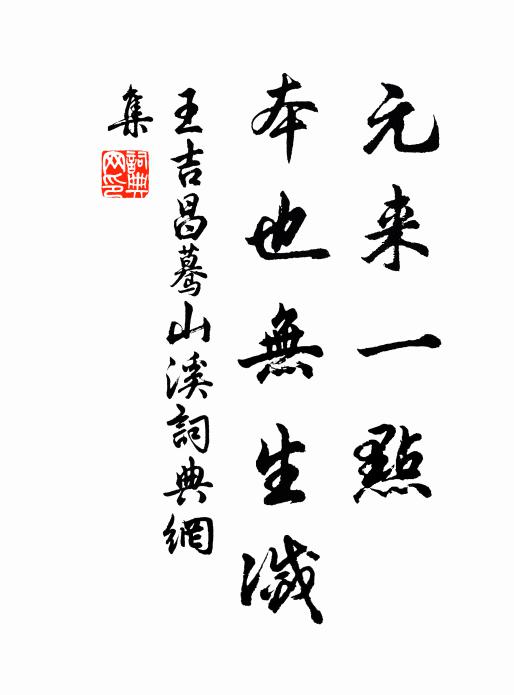 元来一點
本也無生滅
王吉昌驀山溪詞典網
集
詞典网印